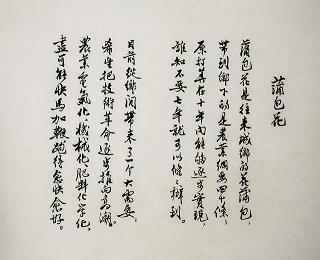 蒲包花
蒲包花是往来城乡的花蒲包，
带到乡下的是农业纲要四十条；
原打算在十年内能够逐步实现，
谁知不要七年就可以条条办到。
目前从乡间带来了一个大需要：
希望把技术革命逐步推向高潮。
农业电气化、机械化、肥料化学化，
尽可能快马加鞭跑得愈快愈好。